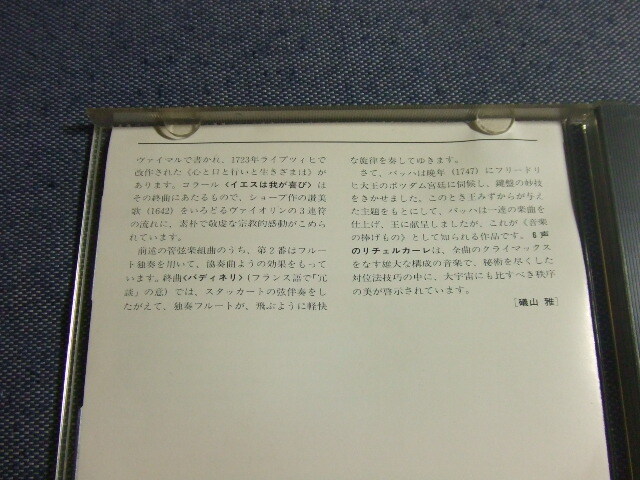 ヴァイマルで書かれ、1723年ライプツィヒで
改作された《心と口と行いと生きざまは》が
あります。コラール《イエスは我が喜び》は
その終曲にあたるもので、ショープ作の讃美
歌（1642）をいろどるヴァイオリンの3連符
の流れに、素朴で敬虔な宗教的感動がこめら
れています。
前述の管弦楽組曲のうち、第2番はフルー
ト独奏を用いて、協奏曲ふうの効果をもって
います。終曲《バディネリ》（フランス語で「冗
談」の意）では、スタッカートの弦伴奏をし
たがえて、独奏フルートが、飛ぶように軽快
な旋律を奏してゆきます。
さて、バッハは晩年（1747）にフリードリ
ヒ大王のポツダム宮廷に伺候し、鍵盤の妙技
をきかせました。このとき王みずからが与え
た主題をもとにして、バッハは一連の楽曲を
仕上げ、王に献呈しましたが、これが《音楽
の捧げもの》として知られる作品です。6声
のリチェルカーレは、全曲のクライマックス
をなす雄大な構成の音楽で、秘術を尽くした
対位法技巧の中に、大宇宙にも比すべき秩序
の美が啓示されています。
［礒山 雅］